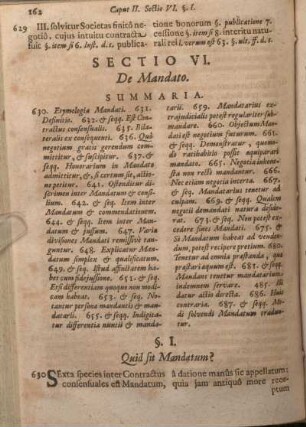 162 Caput II. Sectio VI. §. I.
629 III. solvitur Societas finitô ne-
gotiô, cujus intuitu contracta
fuit §. item si 6. Inst. d. t. publica-
tione bonorum §. publicatione 7.
cessione §. item si 8. interitu natu-
rali rei l. verum est 63. §. ult. ff. d. t.
SECTIO VI.
De Mandato.
SUMMARIA.
630. Etymologia Mandati. 631.
Definitio. 632. & seqq. Est Con-
tractus consensualis. 635. Bila-
teralis ex consequenti. 636. Quia
negotium gratis gerendum com-
mittitur, & suscipitur. 637. &
seqq. Honorarium in Mandato
admittitur, &, si certum sit, actio-
ne petitur. 641. Ostenditur di-
scrimen inter Mandatum & consi-
lium. 642. & seq. Item inter
Mandatum & commendationem.
644. & seqq. Item inter Manda-
tum & jussum. 647. Varia
divisiones Mandati remissivè tan-
guntur. 648. Explicatur Man-
datum simplex & qualificatum.
649. & seq.
652. & seqq.
Etsi differentiam quoque non mo-
dicam habeat. 653. & seq. No-
tantur persona mandantis & man-
datarii. 655. & seqq. Indigita-
tur differentia nuncii & manda-
tarii. 659. Mandatarius ex-
trajudicialis potest regulariter sub-
mandare. 660. Objectum Man-
dati est negotium futurum. 661.
& seqq. Demonstratur, quo-
modo ratihabitio possit aequiparari
mandato. 665. Negotia inhone-
sta non rectè mandantur. 666.
Nec etiam negotia interna. 667.
& seq. Mandatarius tenetur ad
culpam. 669. & seqq. Qualem
negotii demandati natura deside-
rat. 673. & seq. Non potest ex-
cedere fines Mandati. 675. &
Si Mandatum habeat ad venden-
dum, potest recipere pretium. 680.
Tenetur ad omnia praestanda, qua
praestari aequum est. 682. & seqq.
Mandans tenetur mandatarium
indemnem servare. 685. Illi
datur actio directa. 686. Huic
contraria. 687. & seqq. Mo-
di solvendi Mandatum tradun-
tur.
§. I.
Quid sit Mandatum?
630 SExta species inter Contractus
consensuales est Mandatum,
à datione manûs sic appellatum:
quia jam antiquô more rece-
ptum